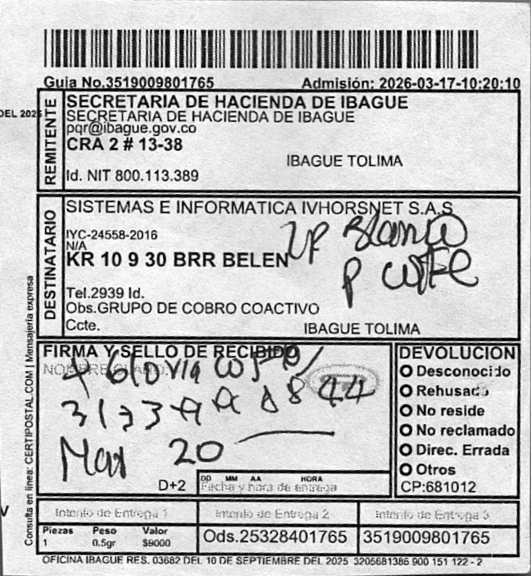 Guia No.3519009801765 Admisión: 2026-03-17-10:20:10
DEL 2025
REMITENTE
SECRETARIA DE HACIENDA DE IBAGUE
SECRETARIA DE HACIENDA DE IBAGUE
pqr@ibague.gov.co
CRA 2 # 13-38
IBAGUE TOLIMA
Id. NIT 800.113.389
DESTINATARIO
SISTEMAS E INFORMATICA IVHORSNET S.A.S
IYC-24558-2016
N/A
KR 10 9 30 BRR BELEN
2P Blanco
P Cafe
Tel.2939 Id.
Obs.GRUPO DE COBRO COACTIVO
Ccte.
IBAGUE TOLIMA
Consulta en línea: CERTIPOSTAL.COM I Mensajería expresa
FIRMA Y SELLO DE RECIBIDO
Mar 20
D+2
DD MM AA HORA
Fecha y hora de entrega
DEVOLUCION
Desconocido
Rehusado
No reside
No reclamado
Direc. Errada
Otros
CP:681012
Intento de Entrega 1 Intento de Entrega 2 Intento de Entrega 3
Piezas Peso Valor
1 0.5gr $9000
Ods.25328401765
3519009801765
OFICINA IBAGUE RES. 03682 DEL 10 DE SEPTIEMBRE DEL 2025 3205681386 900 151 122 - 2